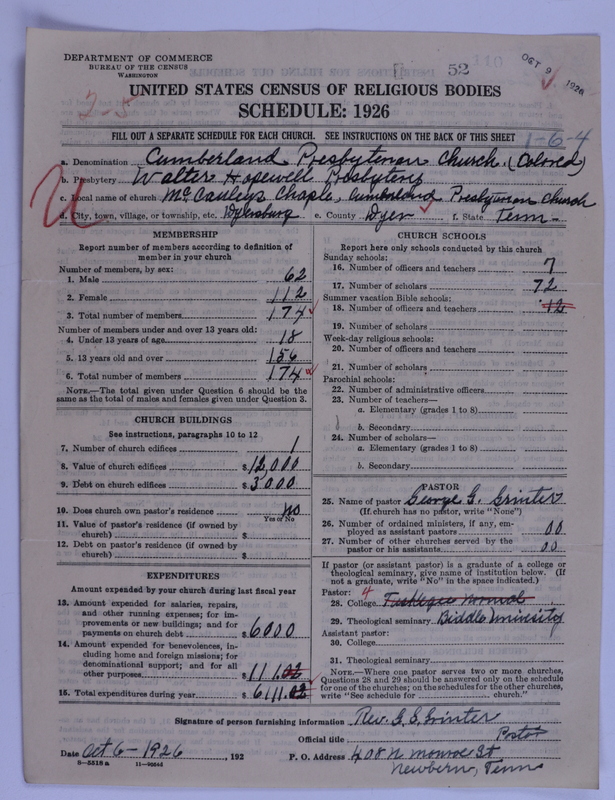 DEPARTMENT OF COMMERCE
BUREAU OF THE CENSUS
WASHINGTON
52
OCT 9 1926
2-5
UNITED STATES CENSUS OF RELIGIOUS BODIES
SCHEDULE: 1926
FILL OUT A SEPARATE SCHEDULE FOR EACH CHURCH. SEE INSTRUCTIONS ON THE BACK OF THIS SHEET
1-6-4
a. Denomination Cumberland Presbyterian Church (Colored)
b. Presbytery Walter Hopewell Presbytery
c. Local name of church McCauleys Chaple, Cumberland Presbyterian Church
d. City, town, village, or township, etc. Dyersburg e. County Dyer f. State Tenn
MEMBERSHIP
Report number of members according to definition of
member in your church
Number of members, by sex:
1. Male 62
2. Female 112
3. Total number of members 174
Number of members under and over 13 years old:
4. Under 13 years of age 18
5. 13 years old and over 156
6. Total number of members 174
NOTE.—The total given under Question 6 should be the
same as the total of males and females given under Question 3.
CHURCH BUILDINGS
See instructions, paragraphs 10 to 12
7. Number of church edifices 1
8. Value of church edifices $12,000
9. Debt on church edifices $3000
10. Does church own pastor's residence no
Yes or No
11. Value of pastor's residence (if owned by
church) $
12. Debt on pastor's residence (if owned by
church) $
EXPENDITURES
Amount expended by church during last fiscal year
13. Amount expended for salaries, repairs,
and other running expenses; for im-
provements or new buildings; and for
payments on church debt $6000
14. Amount expended for benevolences, in-
cluding home and foreign missions; for
denominational support; and for all
other purposes $111.02
15. Total expenditures during year $6111.02
CHURCH SCHOOLS
Report here only schools conducted by this church
Sunday schools:
16. Number of officers and teachers 7
17. Number of scholars 72
Summer vacation Bible schools:
18. Number of officers and teachers 12
19. Number of scholars
Week-day religious schools:
20. Number of officers and teachers
21. Number of scholars
Parochial schools:
22. Number of administrative officers
23. Number of teachers—
a. Elementary (grades 1 to 8)
b. Secondary
24. Number of scholars—
a. Elementary (grades 1 to 8)
b. Secondary
PASTOR
25. Name of pastor George G. Grinter
(If church has no pastor, write "None")
26. Number of ordained ministers, if any, em-
ployed as assistant pastors 00
27. Number of other churches served by the
pastor or his assistants 00
If pastor (or assistant pastor) is a graduate of a college or
theological seminary, give name of institution below. (If
not a graduate, write "No" in the space indicated.)
Pastor: 4
28. College Tuskegee Normal
29. Theological seminary Biddle University
Assistant pastor:
30. College
31. Theological seminary
NOTE.—Where one pastor serves two or more churches,
Questions 28 and 29 should be answered only on the schedule
for one of the churches; on the schedules for the other churches,
write "See schedule for church."
Signature of person furnishing information Rev. G. G. Grinter
Official title Pastor
Date Oct 6-1926, 192 P. O. Address 408 N Monroe St
8-5518 a 11-9056d Newbern, Tenn